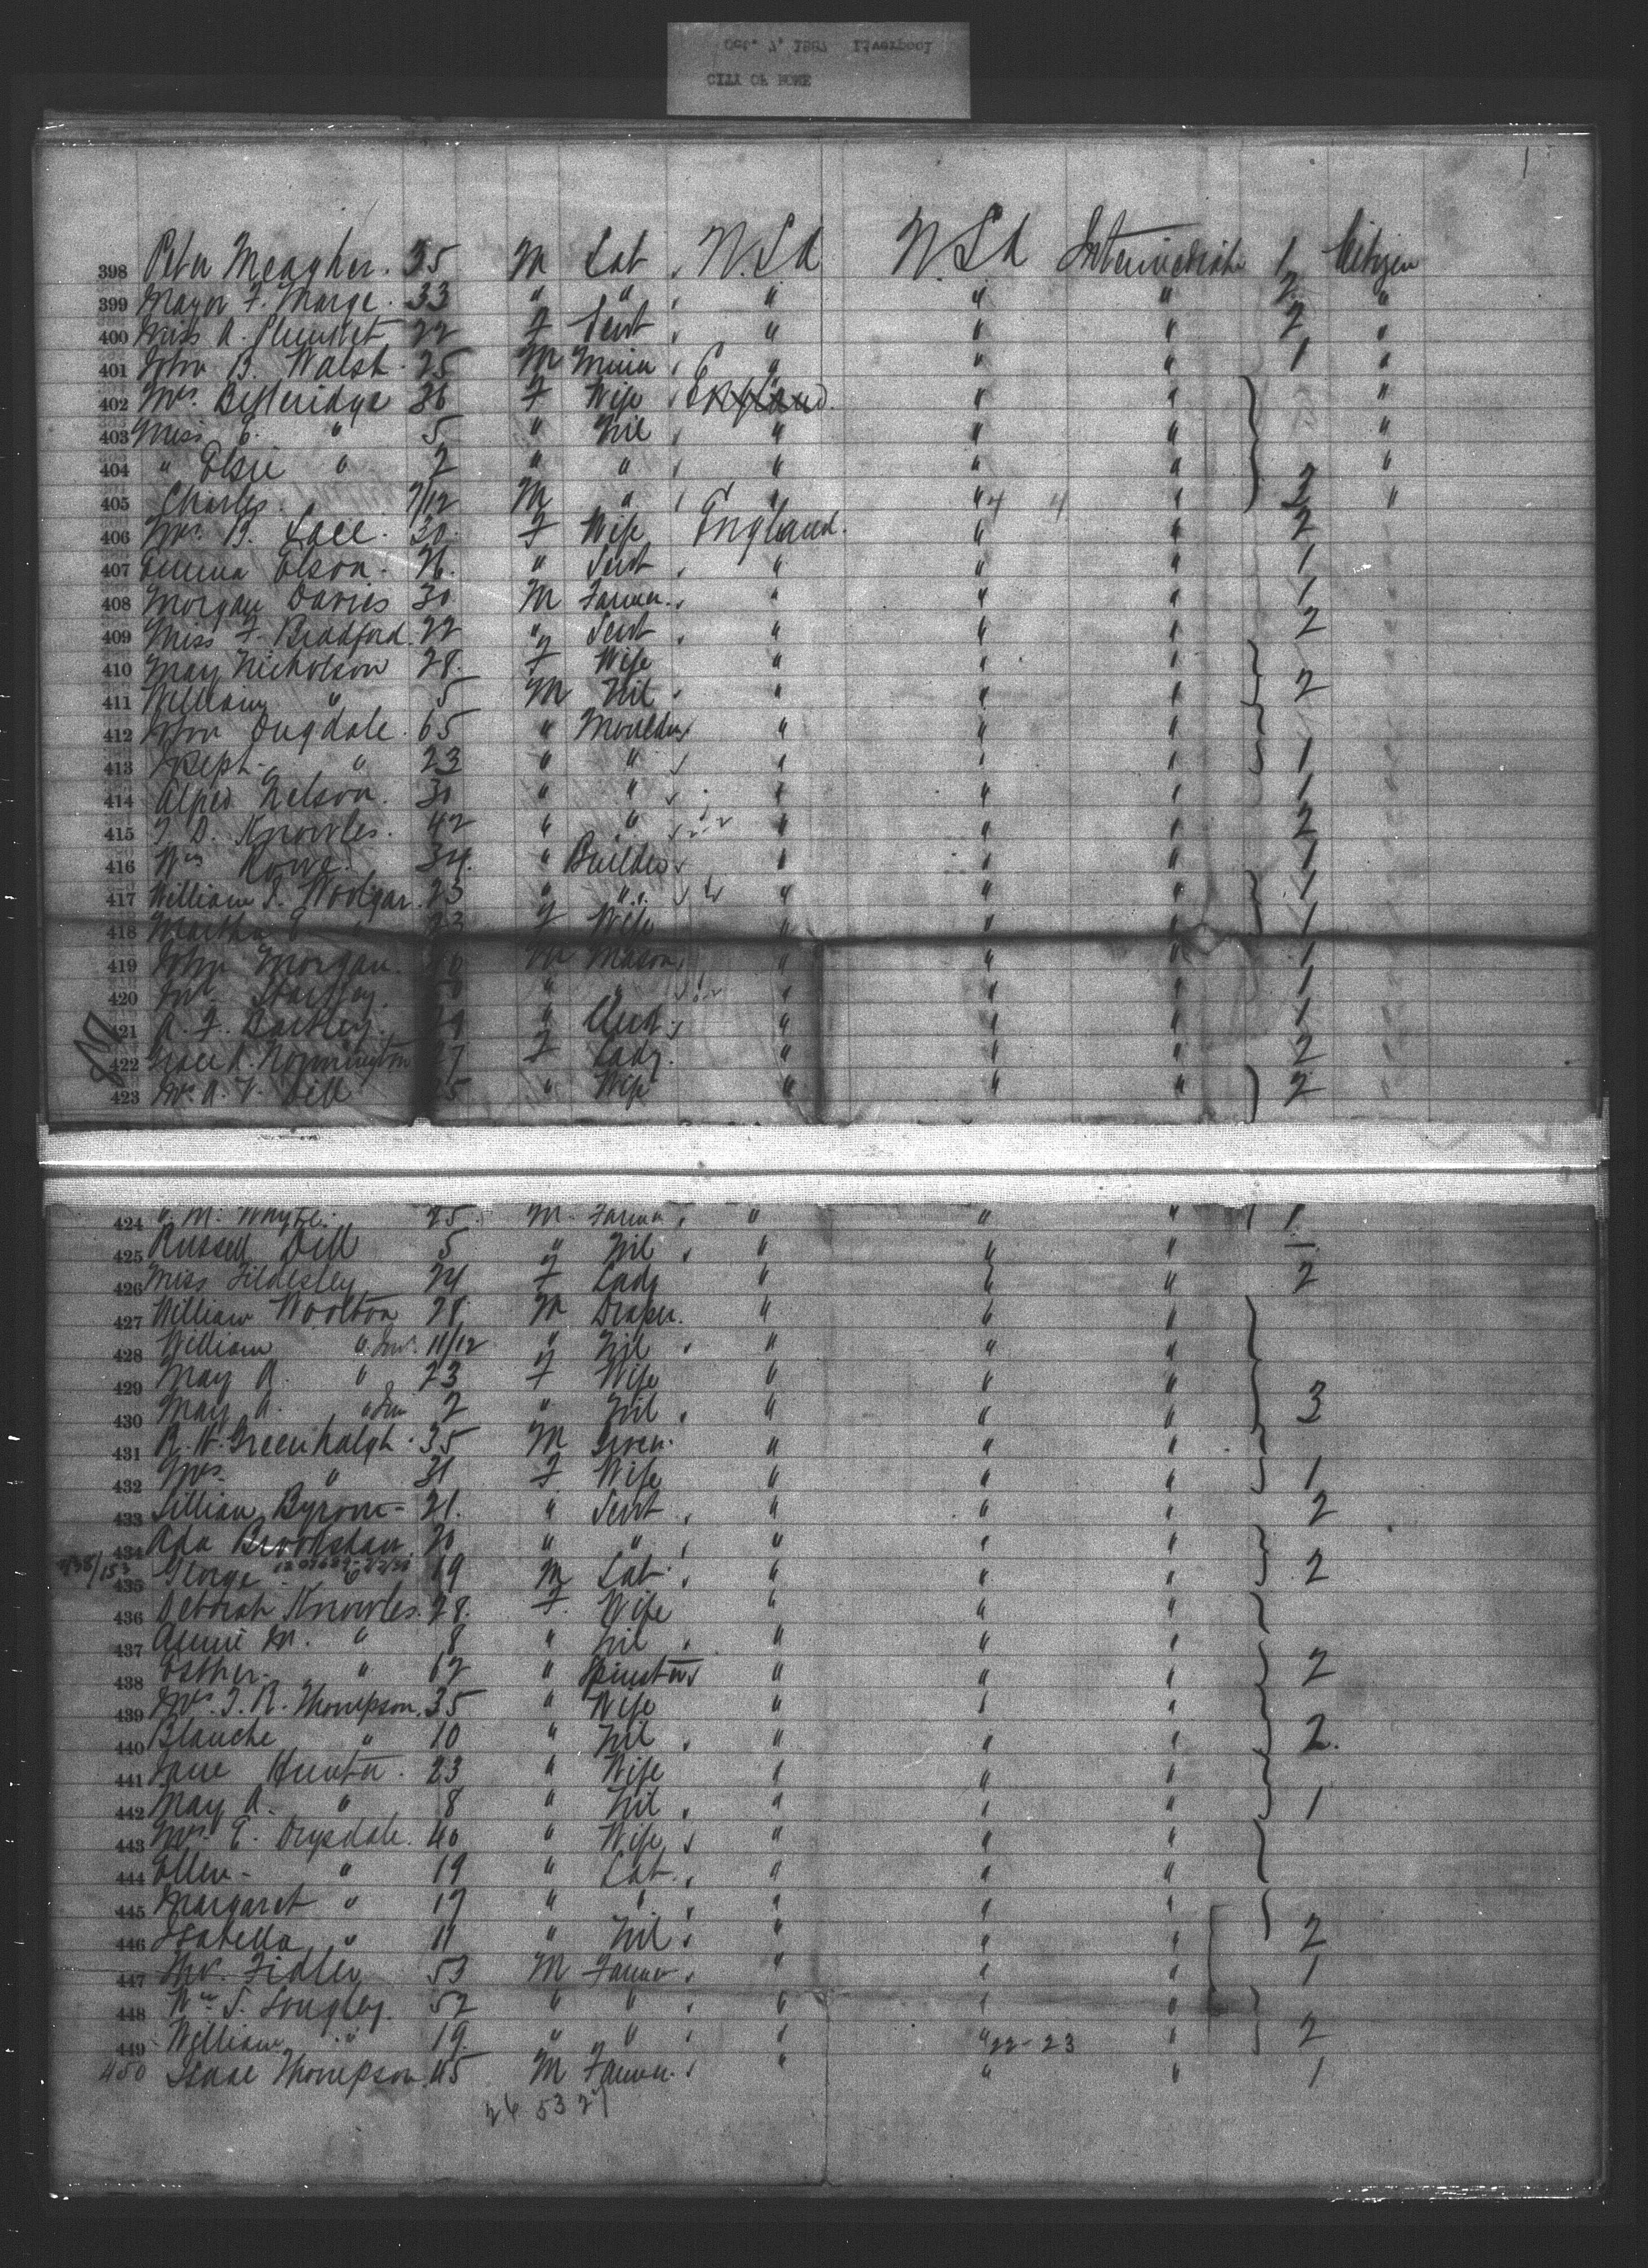 Oct. 7, 1887 Liverpool
CITY OF ROME
398 Peter Meagher. 35 M Lab N.Sd N.Sd Intermediate 1 Citizen
399 33 " " " " " 2 "
400 Miss A. 22 F Servt " " " 2 "
401 John B. Walsh. 25 M " " " 1 "
402 Mrs. Betteridge 36 F Wife England " " "
403 Miss E. " 5 " Nil " " " "
404 " Elsie " 2 " " " " " "
405 Charles. 7/12 M " " " " 2 "
406 Mrs. B. 30 F Wife England. " " 2
407 Emma Elson. 26. " Servt " " " 1
408 Morgan Davies 30 M Farmer. " " " 1
409 Miss F. Bradford. 22 " Servt " " " 2
410 May Nicholson 28. F Wife " " "
411 William " 5 M Nil " " " 2
412 John Dugdale. 65 " Moulder " " "
413 Joseph " 23 " " " " " 1
414 Alfred Nelson. 30 " " " " " 1
415 Knowles. 42 " " " " " 2
416 Wm Rowe. 34. " Builder " " " 1
417 William Woolgar. 23 " " " " " 1
418 Martha E " 23 F Wife " " " 1
419 John Morgan. 40 M Mason " " " 1
420 " " " " " 1
421 A. F. Bartley. " " " " 1
422 Grace A. 27 F Lady. " " " 2
423 Mrs. A. V. Dell 25 " Wife " " " 2
424 M. Whyte. 25. M. Farmer " " " 1
425 Russell Dell 5 " Nil " " " —
426 Miss Tildesley 24 F Lady " " " 2
427 William Woolton 28. M Draper. " " "
428 William " Jnr. 11/12 " Nil " " "
429 May A. " 23 F Wife " " "
430 May A. " Jun 2 " Nil " " " 3
431 R. H. Greenhalgh. 35 M " " "
432 Mrs. " 31 F Wife " " " 1
433 Lillian Byrom - 21. " Servt " " " 2
434 Ada Brookshaw. 20 " " " " "
435 George " 19 M Lab. " " " 2
436 Deborah Knowles. 28. F. Wife " " "
437 Annie M. " 8 " Nil " " "
438 Esther. " 62 " Spinster " " " 2
439 Mrs. J. R. Thompson. 35 " Wife " " "
440 Blanche " 10 " Nil " " " 2.
441 Jane Hunter. 23 " Wife " " "
442 May A. " 8 " Nil " " " 1
443 Mrs. E. Drysdale. 40 " Wife " " "
444 Ellen - " 19 " Lab. " " "
445 Margaret " 17 " " " " "
446 Isabella " 11 " Nil " " " 2
447 Fidler 53 M Farmer " " " 1
448 Wm S. Longley. 52 " " " " "
449 William " 19. " " " " 22-23 " 2
450 Isaac Thompson. 45 M Farmer. " " " 1
26 53 27